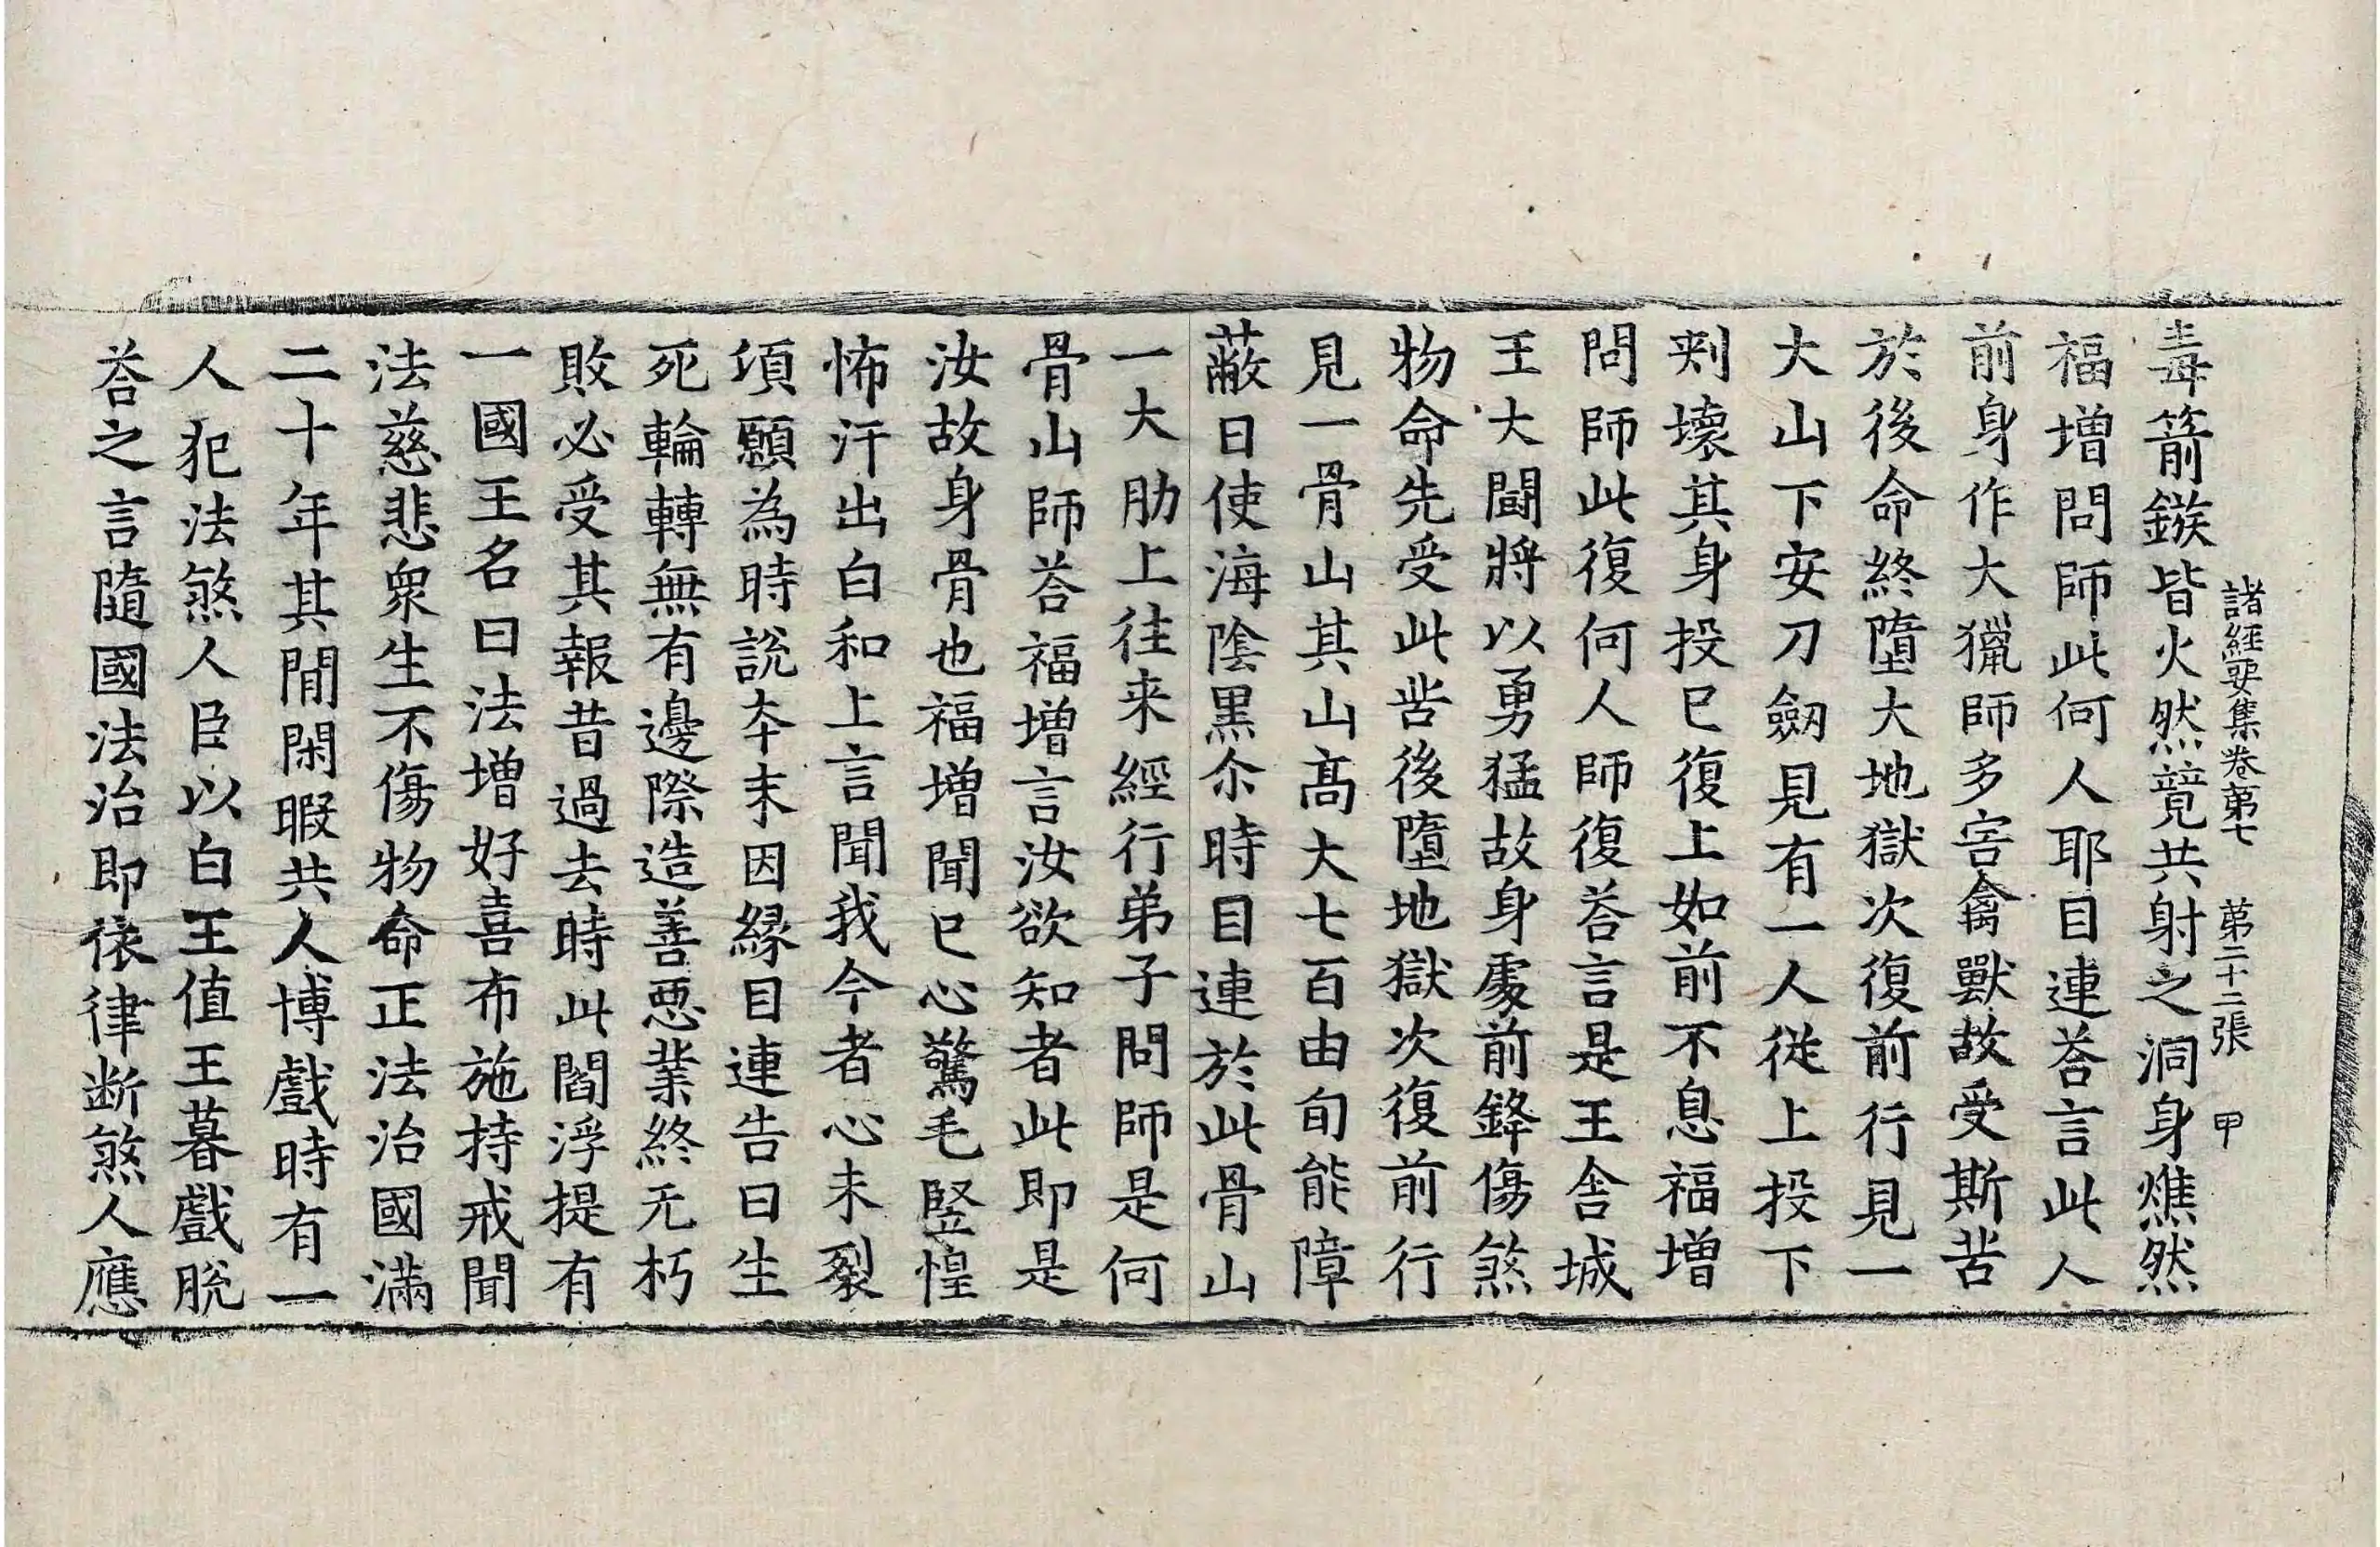 諸經要集卷第七 第二十二張 甲
毒箭鏃皆火然競共射之洞身燋然
福增問師此何人耶目連荅言此人
前身作大獵師多害禽獸故受斯苦
於後命終墮大地獄次復前行見一
大山下安刀劒見有一人從上投下
刾壞其身投已復上如前不息福增
問師此復何人師復荅言是王舍城
王大鬪將以勇猛故身處前鋒傷煞
物命先受此苦後墮地獄次復前行
見一骨山其山髙大七百由旬能障
蔽日使海陰黒尒時目連於此骨山
一大肋上往来經行弟子問師是何
骨山師荅福增言汝欲知者此即是
汝故身骨也福增聞已心驚毛竪惶
怖汗出白和上言聞我今者心未裂
頃願為時說夲末因縁目連告曰生
死輪轉無有邊際造善惡業終无朽
敗必受其報昔過去時此閻浮提有
一國王名曰法增好喜布施持戒聞
法慈悲衆生不傷物命正法治國滿
二十年其閒閑暇共人博戲時有一
人犯法煞人臣以白王值王暮戲脫
荅之言隨國法治即依律断煞人應